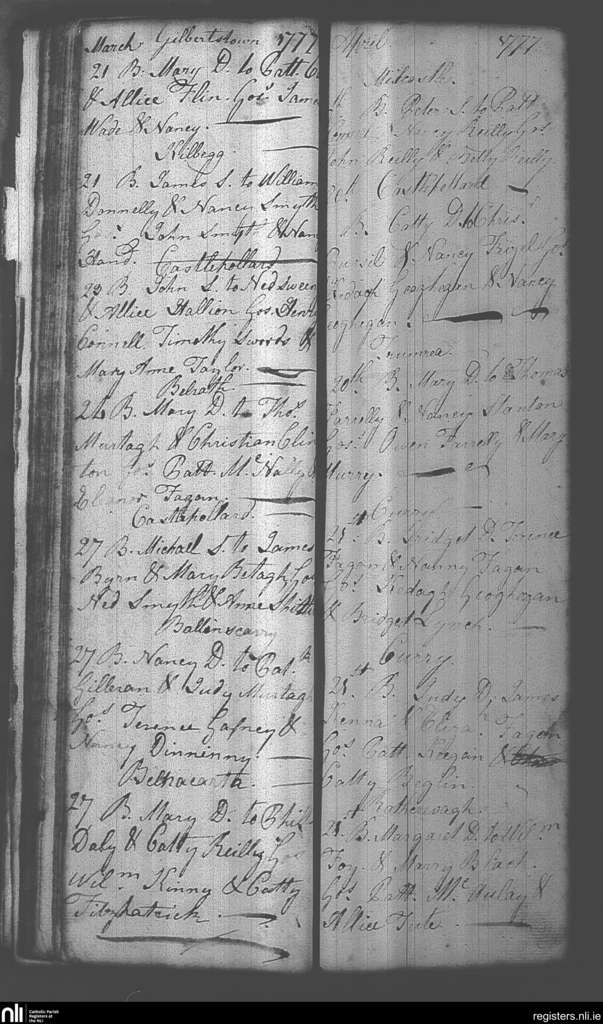 March Gilbertstown 1777
21 B. Mary D. to Patt.
& Allice Flin Gos. Jame
Wade & Nancy.
Kilbegg
21 B. James S. to William
Donnelly & Nancy Smyth
Gos. John Smyth & Nan
Stand. Castlepollard
23 B John S. to Ned Sween
& Allice Hallion Gos. Henr
Connell Timothy Swords &
Mary Anne Taylor.
Belrath
24 B. Mary D. to Thos.
Murtagh & Christian Clin
ton Gos. Patt. Mc Nally &
Elianor Fagan.
Castlepollard.
27 B. Michael S. to James
Byrn & Mary Betagh Gos
Ned Smyth & Anne
Ballinscarry
27 B. Nancy D. to Patt.
Gilleran & Judy Murtagh
Gos Terence Gafney &
Nancy Dinninny.
27 B. Mary D. to Phill
Daly & Catty Reilly Gos
Wilm. Kinny & Catty
Fitzpatrick
April 1777
B. Peter S. to Patt
Nancy Reilly Gos.
John Reilly & Betty Reilly
Castlepollard
B. Catty D. to Chris.
& Nancy Gos.
Kedagh Geoghegan & Nancy
Geoghegan.
20th B. Mary D. to Thomas
Farrelly & Nancy Stanton
Gos. Owen Farrelly & Mary
Murry.
Curry
21st B. Bridget D. Terence
Fagan & Nanny Fagan
Gos. Kedagh Geoghegan
& Bridget Lynch.
Curry.
21st B. Judy D. James
Kenna & Eliza. Fagan
Gos. Patt Keegan &
Catty Beglin.
21st B. Margaret D. to Wilm.
Foy & Mary
Gos. Patt. Mc Aulay &
Allice Tute.
nli
Catholic Parish
Registers at
the NLI
registers.nli.ie